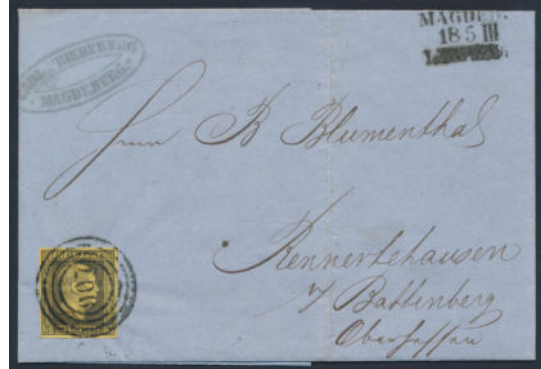 MAGDEB.
18 5 III
MAGDEBURG.
Herrn B Blumenthal
Rennertehausen
b/ Battenberg
Oberhessen